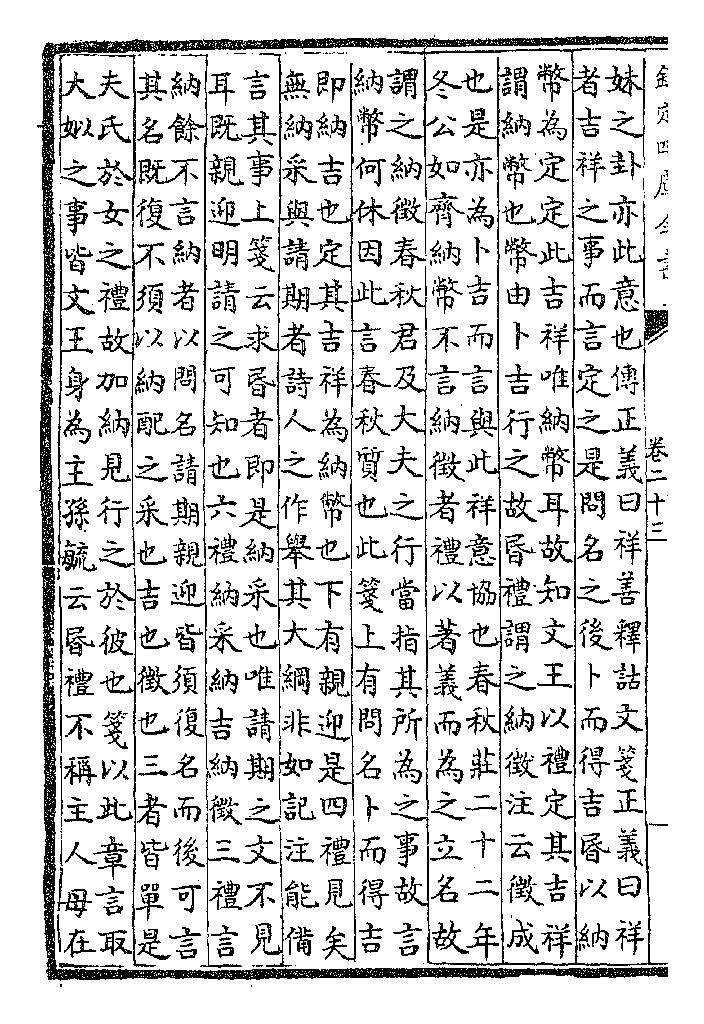 欽定四庫全書
卷二十三
妹之卦亦此意也傳正義曰祥善釋詁文箋正義曰祥
者吉祥之事而言定之是問名之後卜而得吉昏以納
幣為定定此吉祥唯納幣耳故知文王以禮定其吉祥
謂納幣也幣由卜吉行之故昏禮謂之納徴注云徴成
也是亦為卜吉而言與此祥意協也春秋莊二十二年
冬公如齊納幣不言納徴者禮以著義而為之立名故
謂之納徴春秋君及大夫之行當指其所為之事故言
納幣何休因此言春秋質也此箋上有問名卜而得吉
即納吉也定其吉祥為納幣也下有親迎是四禮見矣
無納采與請期者詩人之作舉其大綱非如記注能備
言其事上箋云求昏者即是納采也唯請期之文不見
耳既親迎明請之可知也六禮納采納吉納徴三禮言
納餘不言納者以問名請期親迎皆須復名而後可言
其名既復不須以納配之采也吉也徴也三者皆單是
夫氏於女之禮故加納見行之於彼也箋以此章言取
大姒之事皆文王身為主孫毓云昏禮不稱主人母在